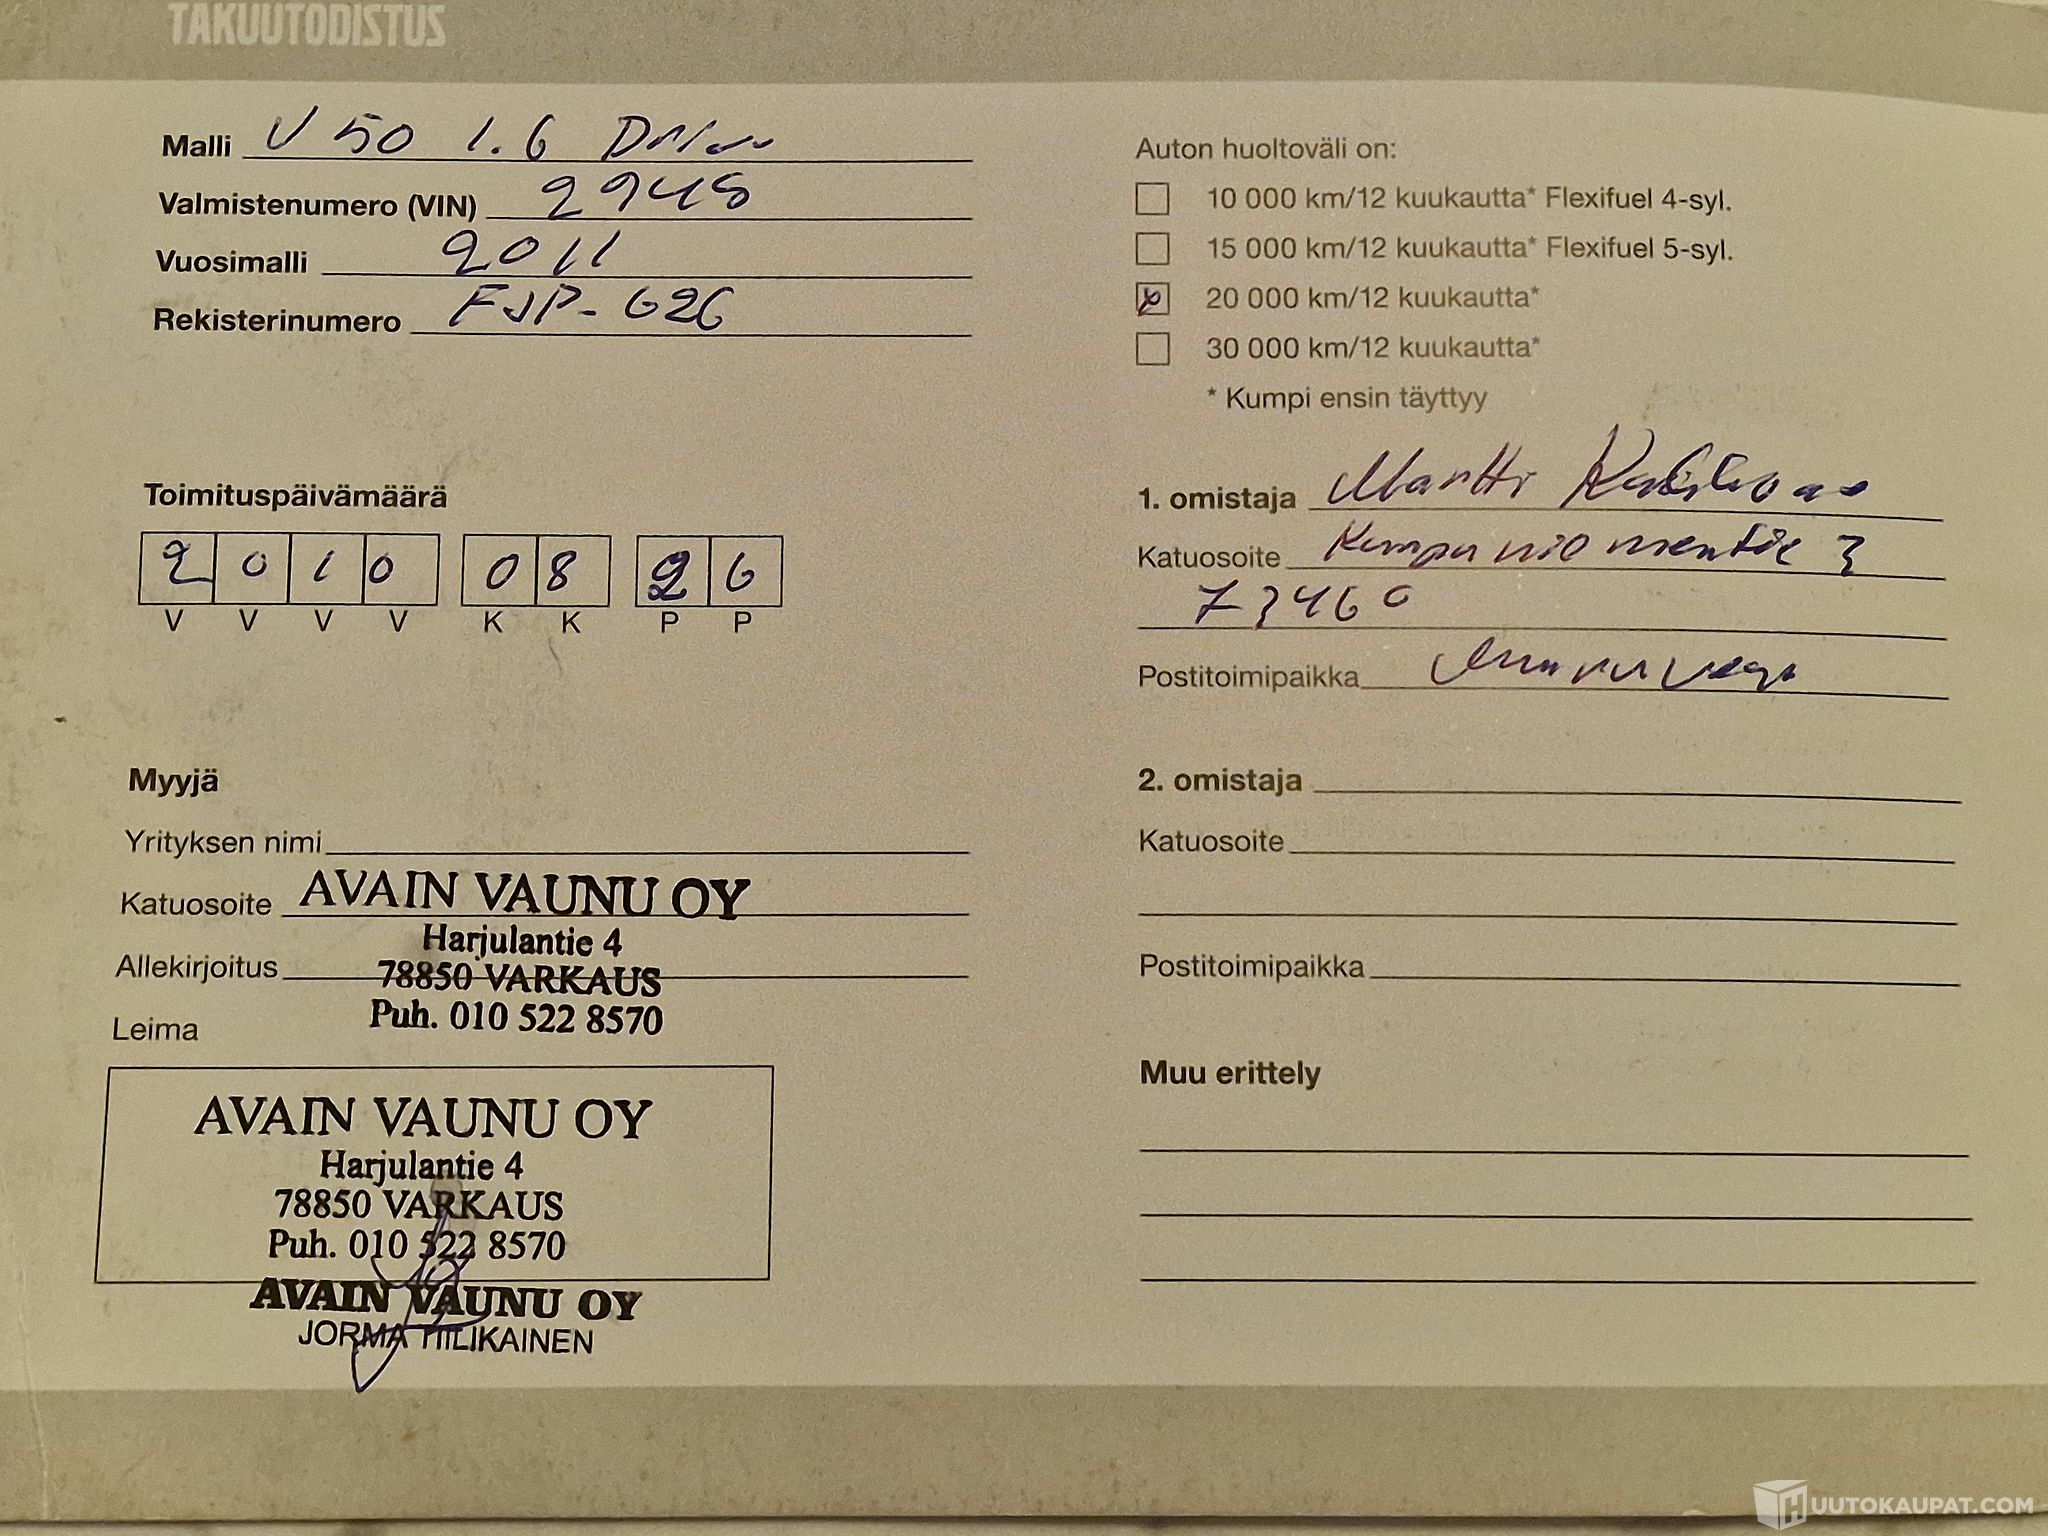 TAKUUTODISTUS
Malli V50 1.6 Drive
Valmistenumero (VIN) 2948
Vuosimalli 2011
Rekisterinumero FJP-626
Auton huoltoväli on:
10 000 km/12 kuukautta* Flexifuel 4-syl.
15 000 km/12 kuukautta* Flexifuel 5-syl.
20 000 km/12 kuukautta*
30 000 km/12 kuukautta*
* Kumpi ensin täyttyy
Toimituspäivämäärä
2010 08 26
V V V V K K P P
1. omistaja Martti
Katuosoite
73460
Postitoimipaikka Muuruvesi
Myyjä
Yrityksen nimi
Katuosoite AVAIN VAUNU OY
Harjulantie 4
Allekirjoitus 78850 VARKAUS
Puh. 010 522 8570
Leima
AVAIN VAUNU OY
Harjulantie 4
78850 VARKAUS
Puh. 010 522 8570
AVAIN VAUNU OY
JORMA TIILIKAINEN
2. omistaja
Katuosoite
Postitoimipaikka
Muu erittely
HUUTOKAUPAT.COM